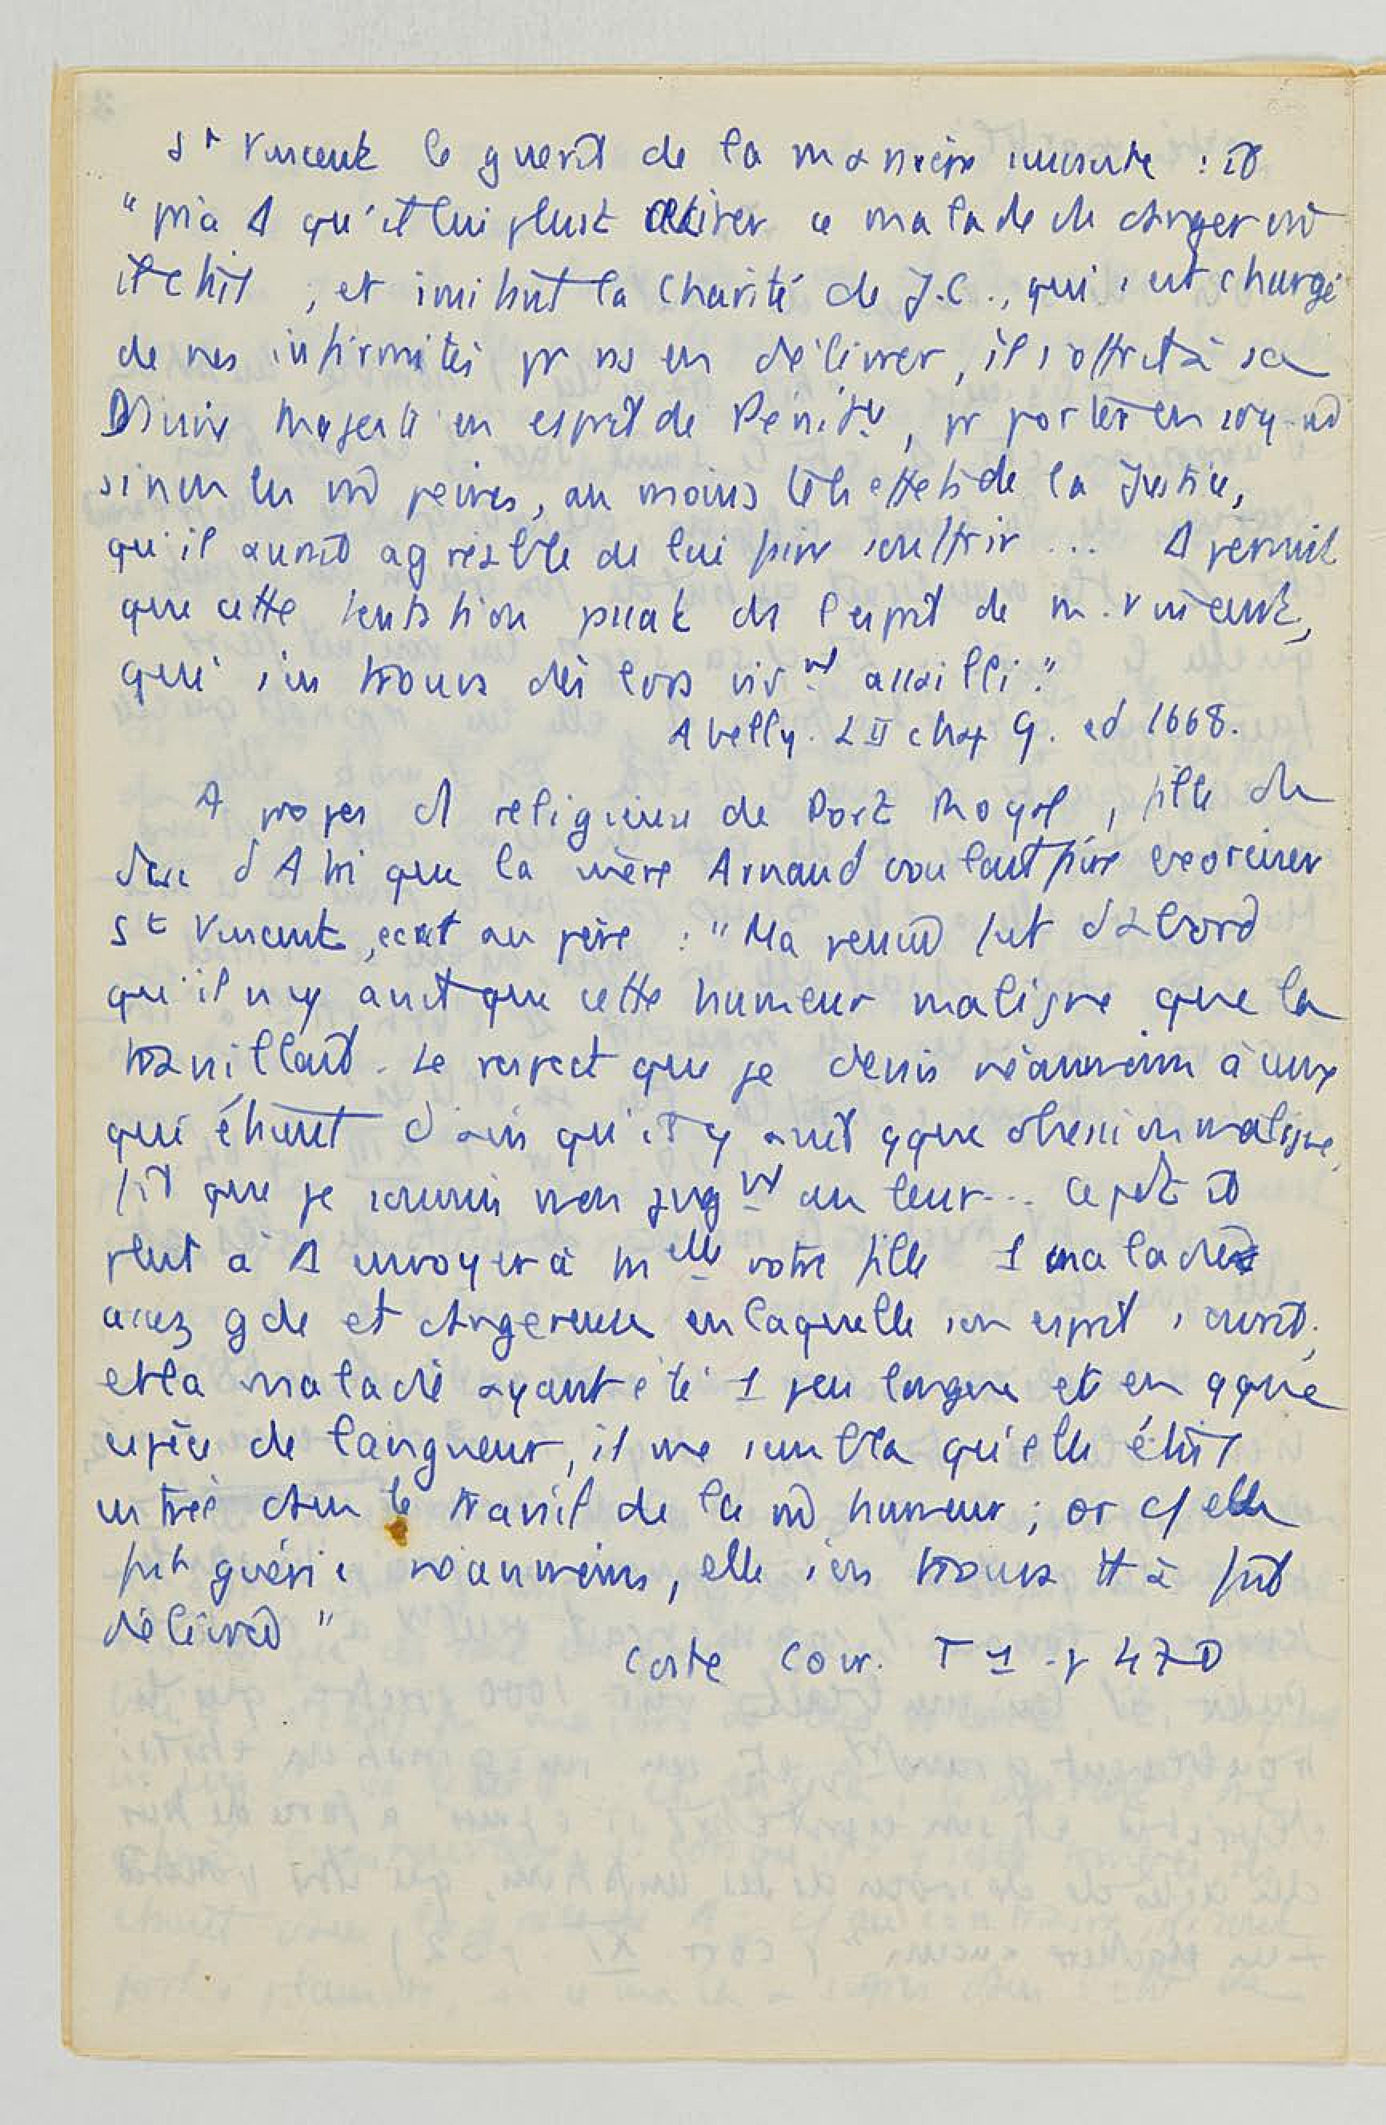 St Vincent le guérit de la manière suivante : il
"pria Δ qu'il lui plust délivrer ce malade de danger où
il était, et imitant la Charité de J.C., qui s'est chargé
de nos infirmités pr ns en délivrer, il s'offrit à sa
Divine Majesté en esprit de Pénitce, pr porter en soy-m̂
sinon les m̂ peines, au moins tels effets de la Justice,
qu'il aurait agréable de lui faire souffrir ... Δ permit
que cette tentation passat ds l'esprit de M. Vincent,
qui s'en trouva dès lors vivmt assailli."
Abelly. L II chap 9. ed 1668.
A propos d' religieuse de Port Royal, fille du
duc d'Atri que la mère Arnaud voulait faire exorciser
St Vincent, écrit au père : "Ma pensée fut d'abord
qu'il n'y avait que cette humeur maligne que la
travaillait. Le respect que je devais néanmoins à ceux
qui étaient d'avis qu'il y avait qque obsession maligne,
fit que je soumis mon jugmt au leur ... Cepdt il
plut à Δ envoyer à Melle votre fille 1 maladie
assez gde et dangereuse en laquelle son esprit s'ouvrit;
et la maladie ayant été 1 peu longue et en qque
espèce de langueur, il me sembla qu'elle était
entrée dans le travail de la m̂ humeur; or c/ elle
fut guérie néanmoins, elle s'en trouva tt à fait
délivrée"
Coste Corr. T 1 p 470